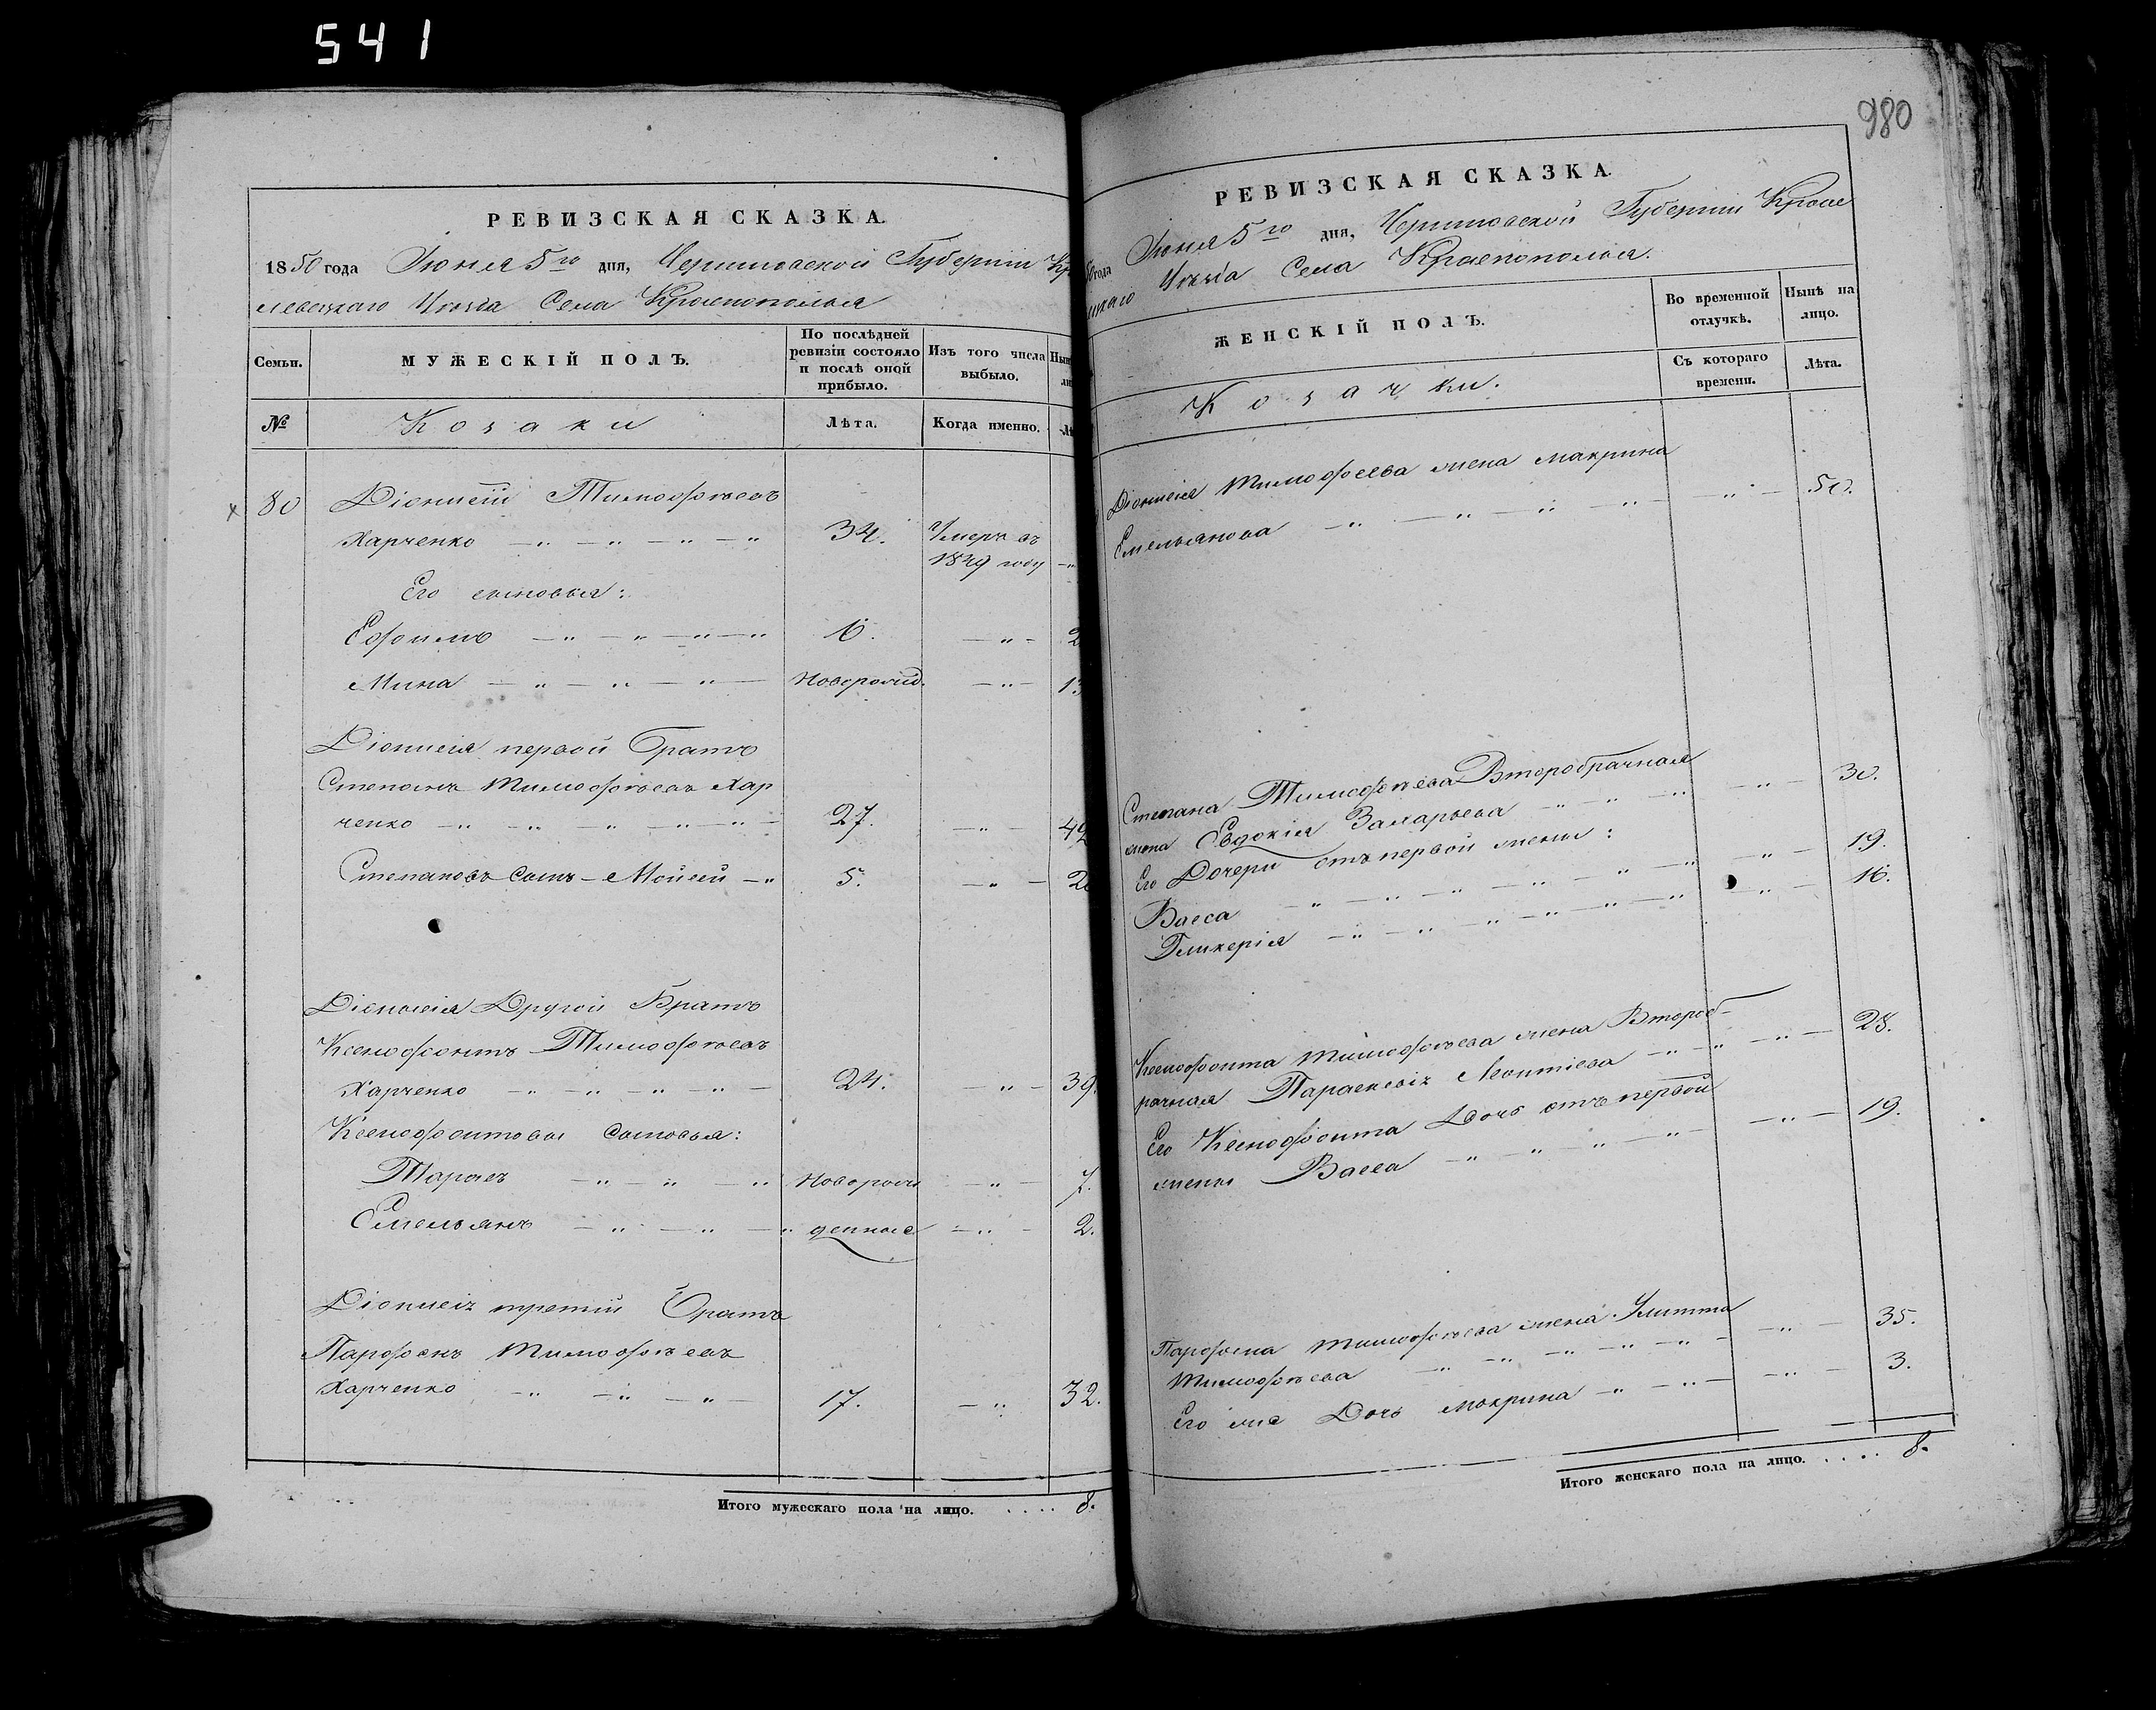 541
РЕВИЗСКАЯ СКАЗКА.
1850 года Июня 5го дня, Черниговской Губернии Кро
левецкаго Уезда Села Краснополья
Семьи.
МУЖЕСКІЙ ПОЛЪ.
По послѣдней ревизіи состояло и послѣ оной прибыло.
Изъ того числа выбыло.
№
Козаки
Лѣта.
Когда именно.
80 Діонисій Тимофѣевъ
Харченко 34. Умеръ въ
1849 году
Его сыновья:
Ефимъ 6.
Мина Новорожд. 13
Діонисія первой Братъ
Степанъ Тимофѣевъ Хар
ченко 27. 42
Степановъ Сынъ Мойсей 5. 20
Діонисія Другой Братъ
Ксенофонтъ Тимофѣевъ
Харченко 24. 39.
Ксенофонтовы сыновья:
Тарасъ Новорож 7.
Емельянъ денные 2.
Діонисія третій Братъ
Парфенъ Тимофѣевъ
Харченко 17. 32.
Итого мужескаго пола на лицо. . . . . 8.
980
РЕВИЗСКАЯ СКАЗКА.
года Июня 5го дня, Черниговской Губерніи Кроле
Уѣзда Села Краснополья.
ЖЕНСКІЙ ПОЛЪ.
Во временной отлучкѣ.
Нынѣ на лицо.
Козачки.
Съ котораго времени.
Лѣта.
Діонисія Тимофеева жена Макрина
Емельянова 50.
Степана Тимофѣева Второбрачная
жена Евдокія Захарьева 30.
Его Дочери отъ первой жены:
Васса 19.
Гликерія 16.
Ксенофонта Тимофѣева жена Второб-
рачная Параскевія Леонтіева 28.
Его Ксенофонта Дочь отъ первой
жены Васса 19.
Парфена Тимофѣева жена Улитта
Тимофѣева 35.
Его же Дочь Макрина 3.
Итого женскаго пола на лицо. . . . . 8.